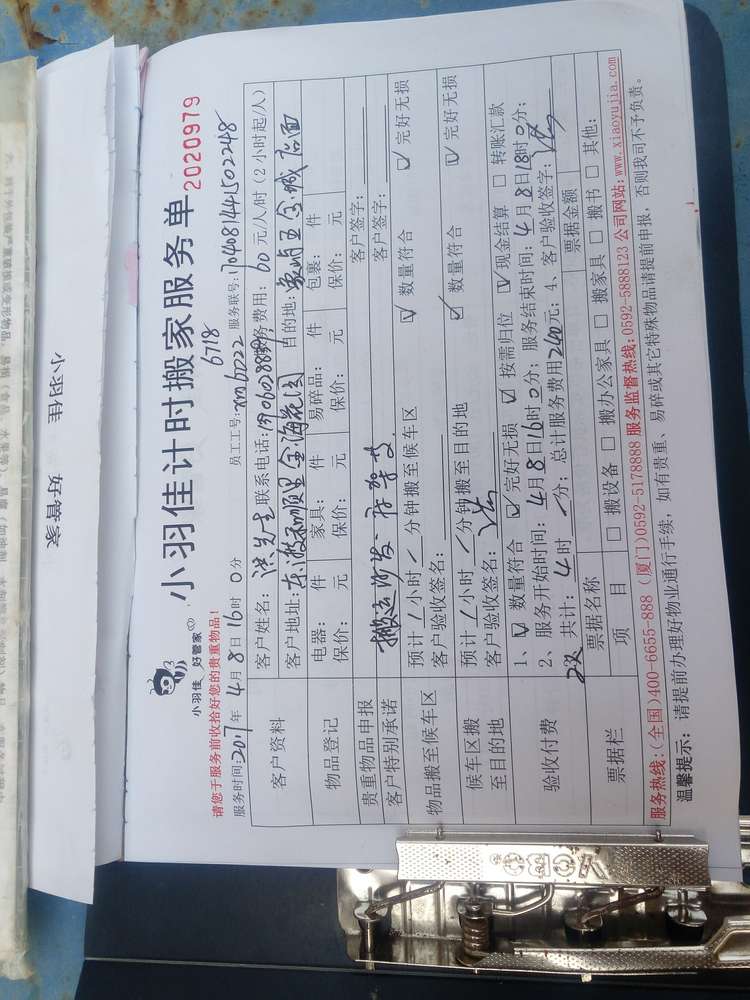 小羽佳 好管家
小羽佳 好管家
小羽佳计时搬家服务单
2020979
请您于服务前收拾好您的贵重物品!
6718
服务时间:2017年 4月 8日 16时 0分 员工工号:xm6222 服务联号:170408144150224​8
客户资料 客户姓名: 洪先生 联系电话: 服务费用: 60 元/人/时 (2小时起/人)
客户地址: 东渡和顺里金海花园 目的地:
物品登记 电器: 件 家具: 件 易碎品: 件 包裹: 件
保价: 元 保价: 元 保价: 元 保价: 元
贵重物品申报 客户签字:
客户特别承诺 搬运沙发 客户签字:
物品搬至候车区 预计 / 小时 / 分钟搬至候车区 ☑ 数量符合 ☑ 完好无损
客户验收签名:
候车区搬至目的地 预计 / 小时 / 分钟搬至目的地 ☑ 数量符合 ☑ 完好无损
客户验收签名:
验收付费 1、☑ 数量符合 ☑ 完好无损 ☑ 按需归位 ☑ 现金结算 □ 转账汇款
2、服务开始时间: 4月8日16时0分; 服务结束时间: 4月8日18时0分;
2人 共计: 4时 / 分; 总计服务费用240元; 4、客户验收签字:
票据栏 票据名称 票据金额
项 目 □ 搬设备 □ 搬办公家具 □ 搬家具 □ 搬书 □ 其他:
服务热线:(全国)400-6655-888 (厦门)0592-5178888 服务监督热线:0592-5888123 公司网站:www.xiaoyujia.com
温馨提示: 请提前办理好物业通行手续, 如有贵重、易碎或其它特殊物品请提前申报, 否则我司不予负责。